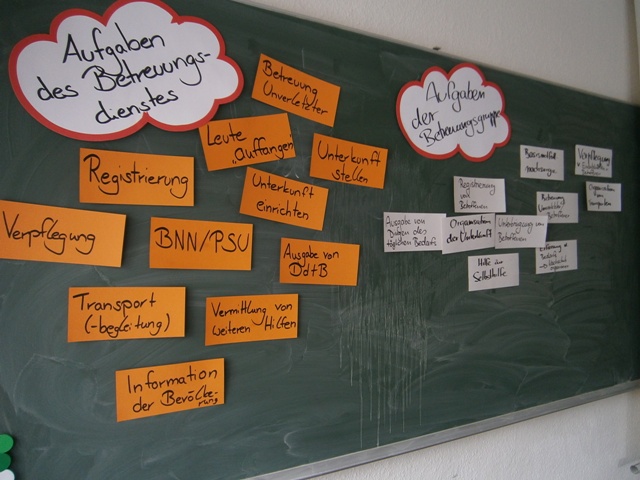 Aufgaben
des Betreuungs-
dienstes
Betreuung
Unverletzter
Leute
"auffangen"
Unterkunft
stellen
Registrierung
Unterkunft
einrichten
Verpflegung
BNN/PSU
Ausgabe von
DdtB
Transport
(-begleitung)
Vermittlung von
weiteren Hilfen
Information
der Bevölke-
rung
Aufgaben
der
Betreuungsgruppe
Verpflegung
Registrierung
von
Betroffenen
Betreuung
Betroffener
Organisation
Ausgabe von
Dingen des
täglichen Bedarfs
Organisation
der Unterkunft
Unterbringung von
Betroffenen
Hilfe zur
Selbsthilfe